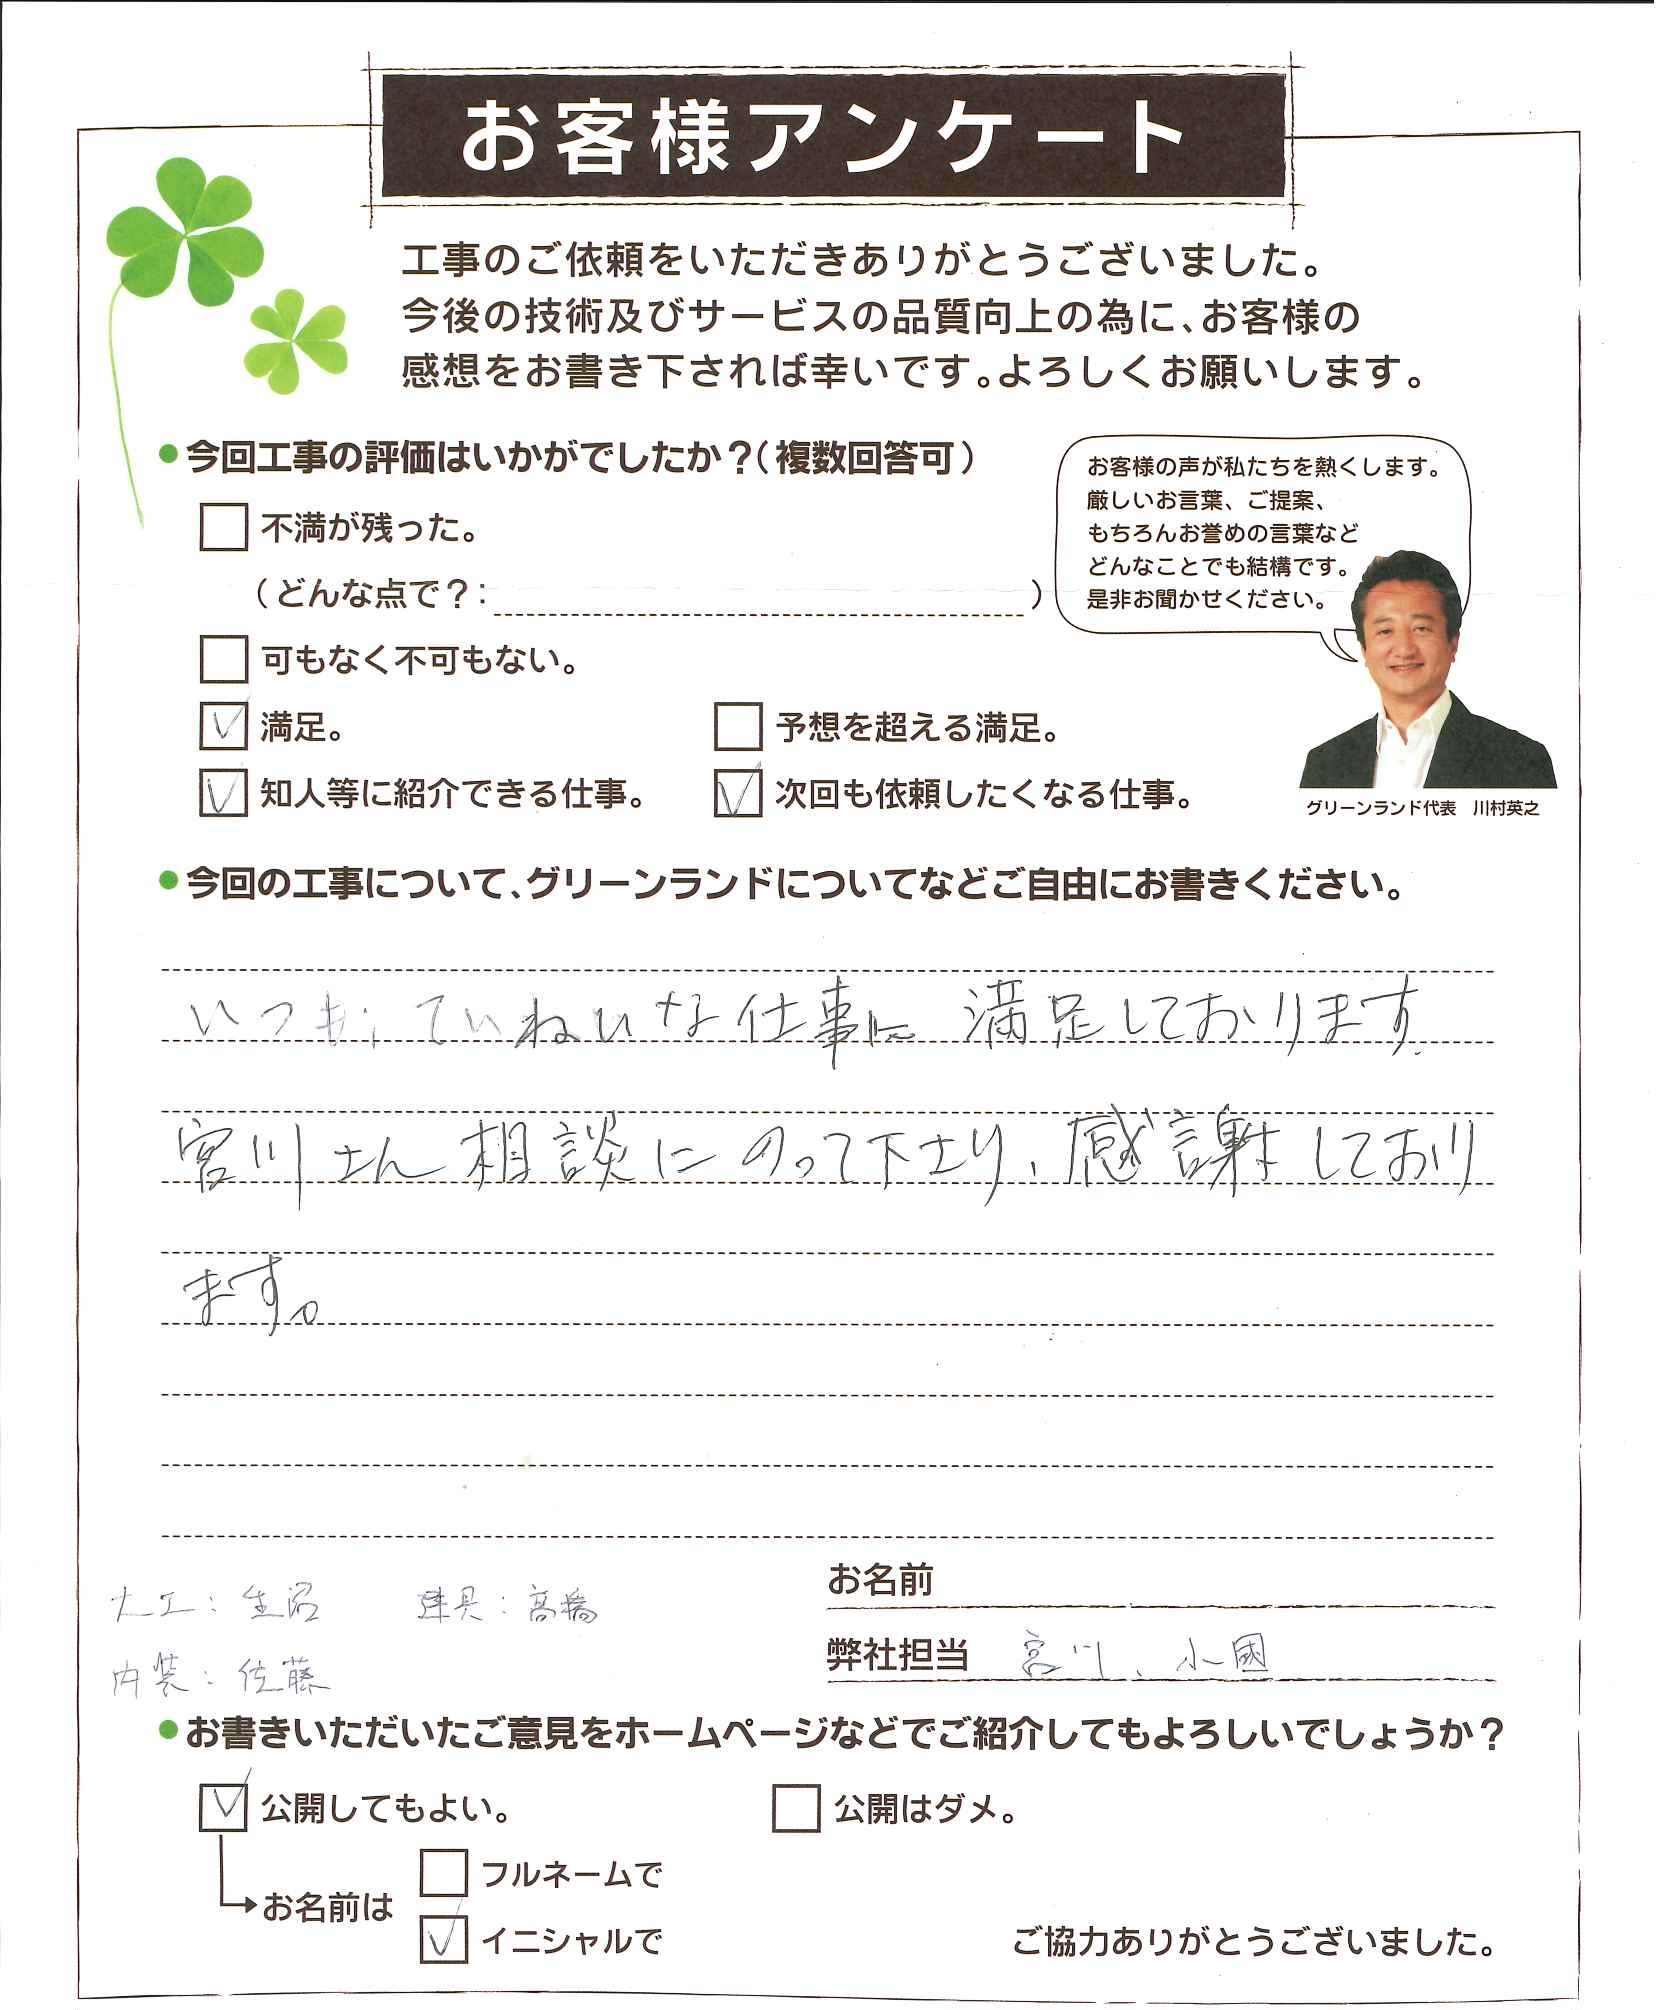 お客様アンケート
工事のご依頼をいただきありがとうございました。
今後の技術及びサービスの品質向上の為に、お客様の
感想をお書き下されば幸いです。よろしくお願いします。
今回工事の評価はいかがでしたか？（複数回答可）
不満が残った。
（どんな点で？：　）
可もなく不可もない。
満足。
予想を超える満足。
知人等に紹介できる仕事。
次回も依頼したくなる仕事。
お客様の声が私たちを熱くします。
厳しいお言葉、ご提案、
もちろんお誉めの言葉など
どんなことでも結構です。
是非お聞かせください。
グリーンランド代表　川村英之
今回の工事について、グリーンランドについてなどご自由にお書きください。
いつも、ていねいな仕事に 満足しております.
宮川さん相談にのって下さり、感謝しており
ます。
大工：生沼　建具：高橋
内装：佐藤
お名前
弊社担当　宮川、小國
お書きいただいたご意見をホームページなどでご紹介してもよろしいでしょうか？
公開してもよい。
公開はダメ。
お名前は
フルネームで
イニシャルで
ご協力ありがとうございました。